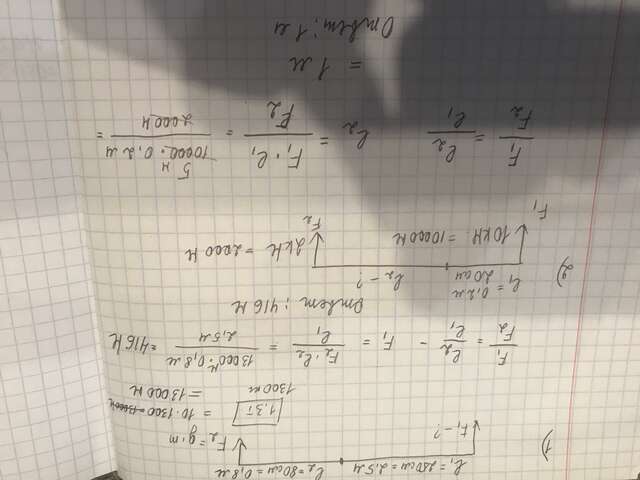 1) l₁ = 250 см = 2,5 м l₂ = 80 см = 0,8 м
F₁ - ? F₂ = g·m
1,3т = 10·1300 = 13000 Н
1300 кг
F₁/F₂ = l₂/l₁ - F₁ = F₂·l₂/l₁ = 13000 Н·0,8 м/2,5 м = 416 Н
Ответ: 416 Н
2) l₁ = 0,2 м l₂ - ?
20 см
10кН = 10000 Н 2кН = 2000 Н
F₁ F₂
F₁/F₂ = l₂/l₁ l₂ = F₁·l₁/F₂ = 10000 Н·0,2 м/2000 Н =
= 1 м
Ответ: 1 м